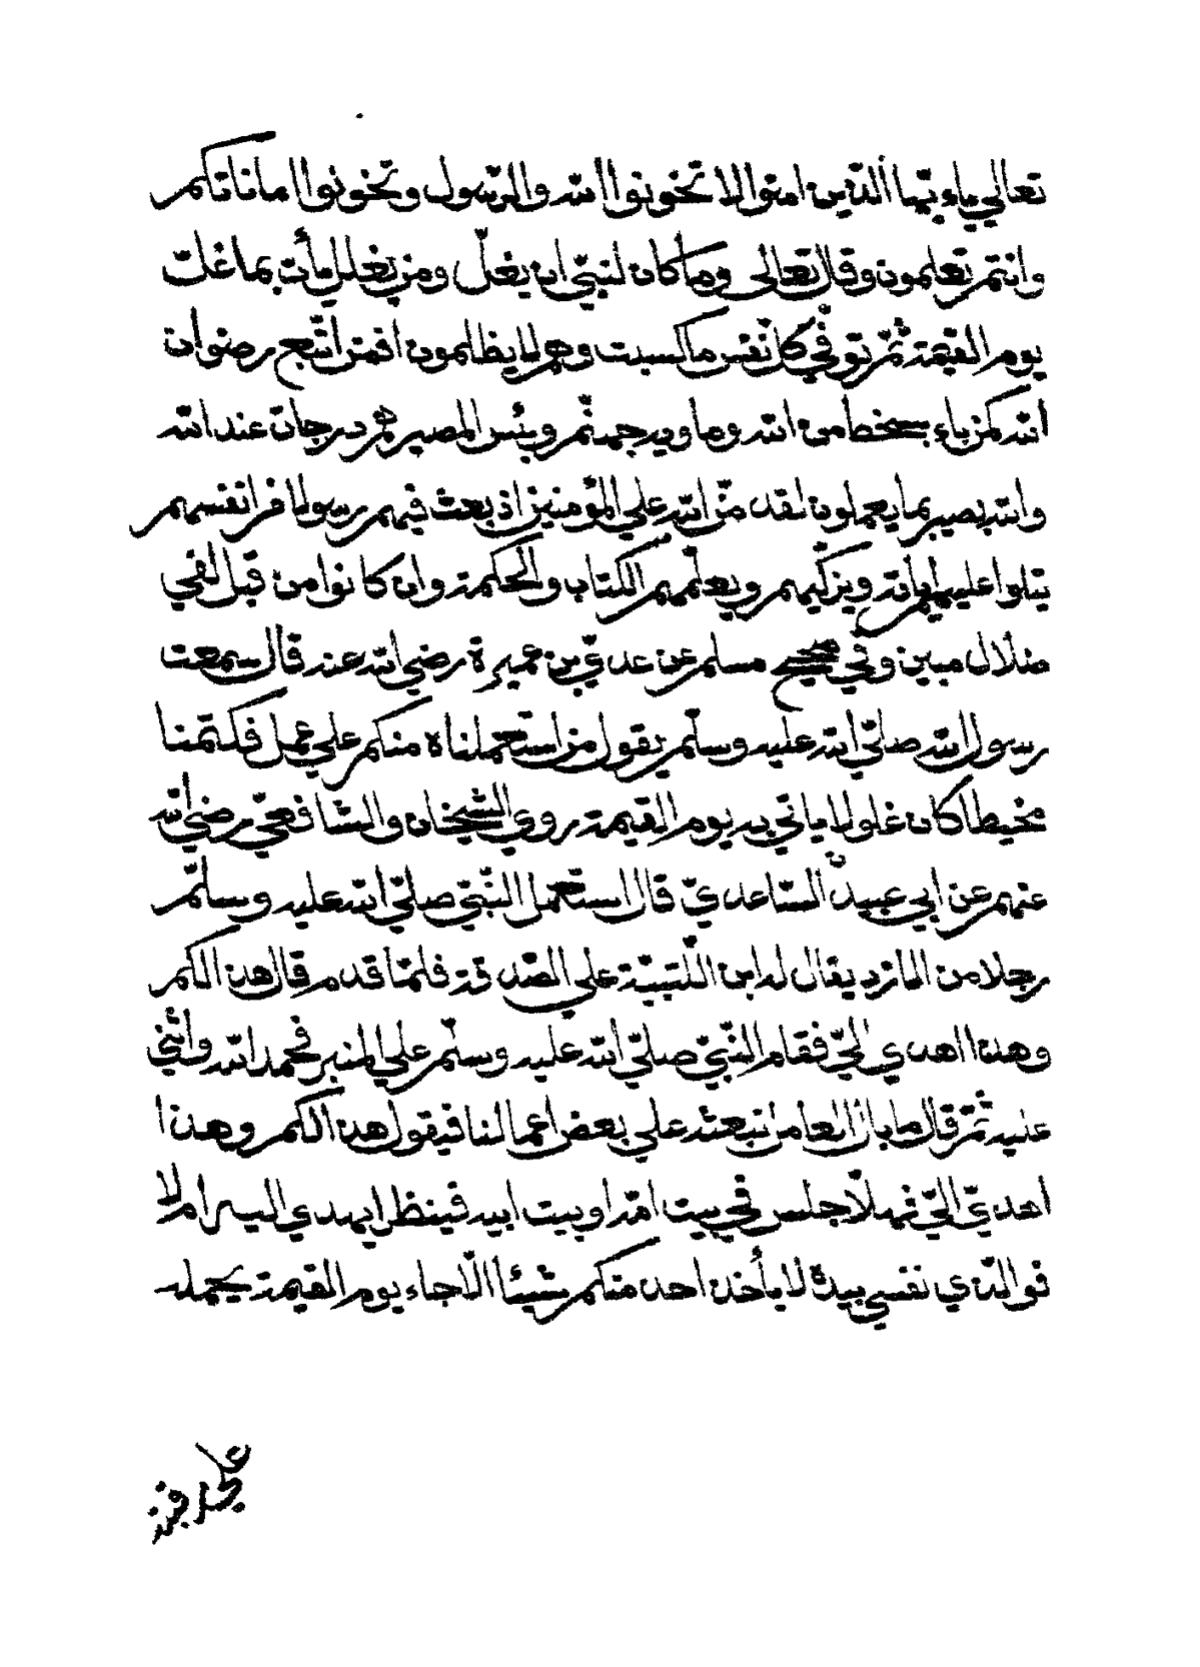 تعالي ياء يّها الّذين امنوا لا تخونوا الله والرّسول وتخونوا اماناتكم
وانتم تعلمون وقال تعالى وما كان لنبيّ ان يغلّ ومن يغلل يأت بما غلّ
يوم القيمة ثمّ توفّي كلّ نفس ما كسبت وهم لا يظلمون افمن اتّبع رضوان
الله كمن باء بسخط من الله وماويه جهنّم وبئس المصير هم درجات عند الله
والله بصير بما يعملون لقد منّ الله علي المؤمنين اذ بعث فيهم رسولا من انفسهم
يتلوا عليهم اياته ويزكّيهم ويعلّمهم الكتاب والحكمة وان كانوا من قبل لفي
ضلال مبين وفي صحيح مسلم عن عديّ بن عميرة رضي الله عنه قال سمعت
رسول الله صلّي الله عليه وسلّم يقول من استعملناه منكم علي عمل فكتمنا
مخيطا كان غلولا ياتي به يوم القيمة روي الشيخان والشافعيّ رضي الله
عنهم عن ابي عبيد السّاعديّ قال استعمل النّبيّ صلّي الله عليه وسلّم
رجلا من الازد يقال له ابن اللّتبيّة علي الصّدقة فلمّا قدم قال هذا لكم
وهذا اهدي اليّ فقام النّبيّ صلّي الله عليه وسلّم علي المنبر فحمد الله واثني
عليه ثمّ قال ما بال العامل نبعثه علي بعض اعمالنا فيقول هذا لكم وهذا
اهديّ اليّ فهلّا جلس في بيت امّه او بيت ابيه فينظر ايهدي اليه ام لا
فوالّذي نفسي بيده لا يأخذ احد منكم شيئا الّا جاء يوم القيمة يحمله